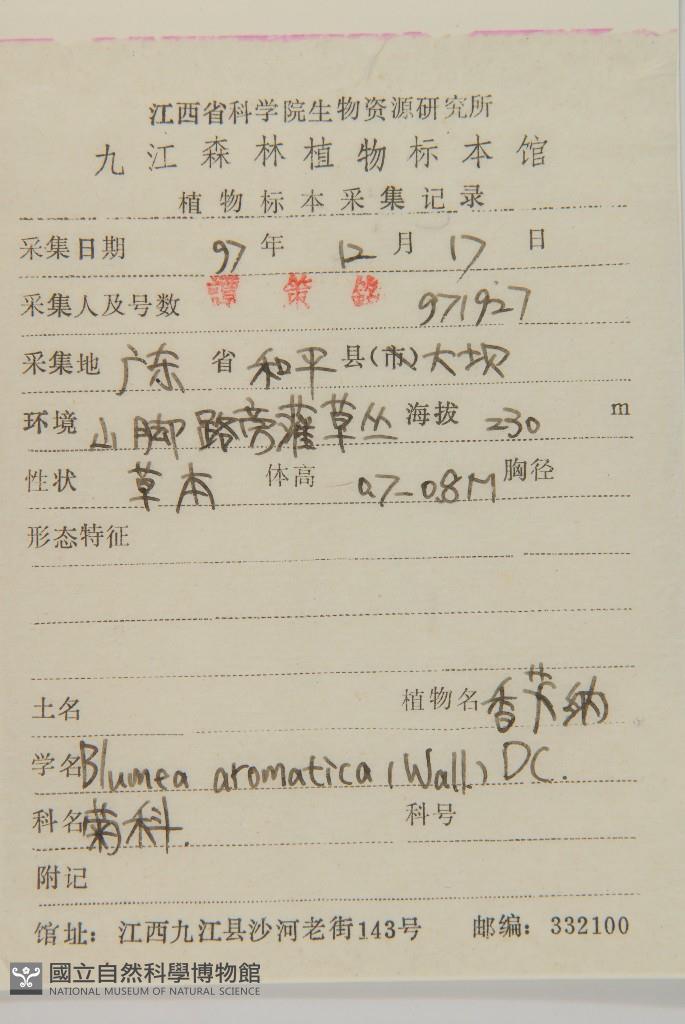 江西省科学院生物资源研究所
九江森林植物标本馆
植物标本采集记录
采集日期 97 年 12 月 17 日
采集人及号数 譚策銘 971927
采集地 广东 省 和平 县(市) 大坝
环境 山脚路旁灌草丛 海拔 230 m
性状 草本 体高 0.7-0.8M 胸径
形态特征
土名 植物名 香艾纳
学名 Blumea aromatica (Wall.) DC.
科名 菊科. 科号
附记
馆址：江西九江县沙河老街143号 邮编：332100
國立自然科學博物館
NATIONAL MUSEUM OF NATURAL SCIENCE